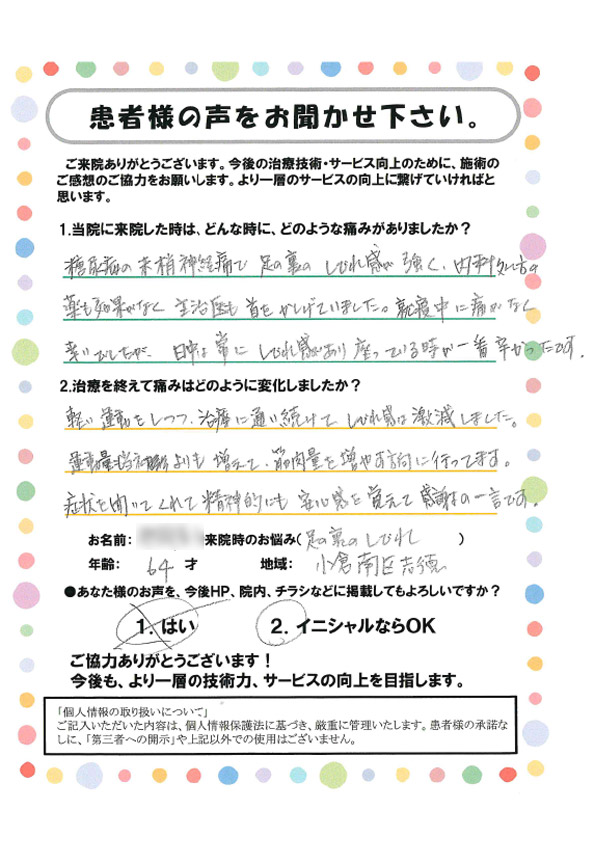 患者様の声をお聞かせ下さい。
ご来院ありがとうございます。今後の治療技術・サービス向上のために、施術の
ご感想のご協力をお願いします。より一層のサービスの向上に繋げていければと
思います。
1.当院に来院した時は、どんな時に、どのような痛みがありましたか？
糖尿病の末梢神経痛で足の裏のしびれ感が強く、内科処方の
薬も効果がなく主治医も首をかしげていました。就寝中に痛みがなく
幸いでしたが、日中は常にしびれ感があり座っている時が一番辛かったです。
2.治療を終えて痛みはどのように変化しましたか？
軽い運動をしつつ、治療に通い続けてしびれ感は激減しました。
運動量も よりも増えて、筋肉量を増やす方向に行ってます。
症状を聞いてくれて精神的にも安心感を覚えて感謝の一言です。
お名前： 来院時のお悩み（足の裏のしびれ ）
年齢： 64 才 地域： 小倉南区吉徳
●あなた様のお声を、今後HP、院内、チラシなどに掲載してもよろしいですか？
1. はい 2. イニシャルならOK
ご協力ありがとうございます！
今後も、より一層の技術力、サービスの向上を目指します。
「個人情報の取り扱いについて」
ご記入いただいた内容は、個人情報保護法に基づき、厳重に管理いたします。患者様の承諾な
しに、「第三者への開示」や上記以外での使用はございません。